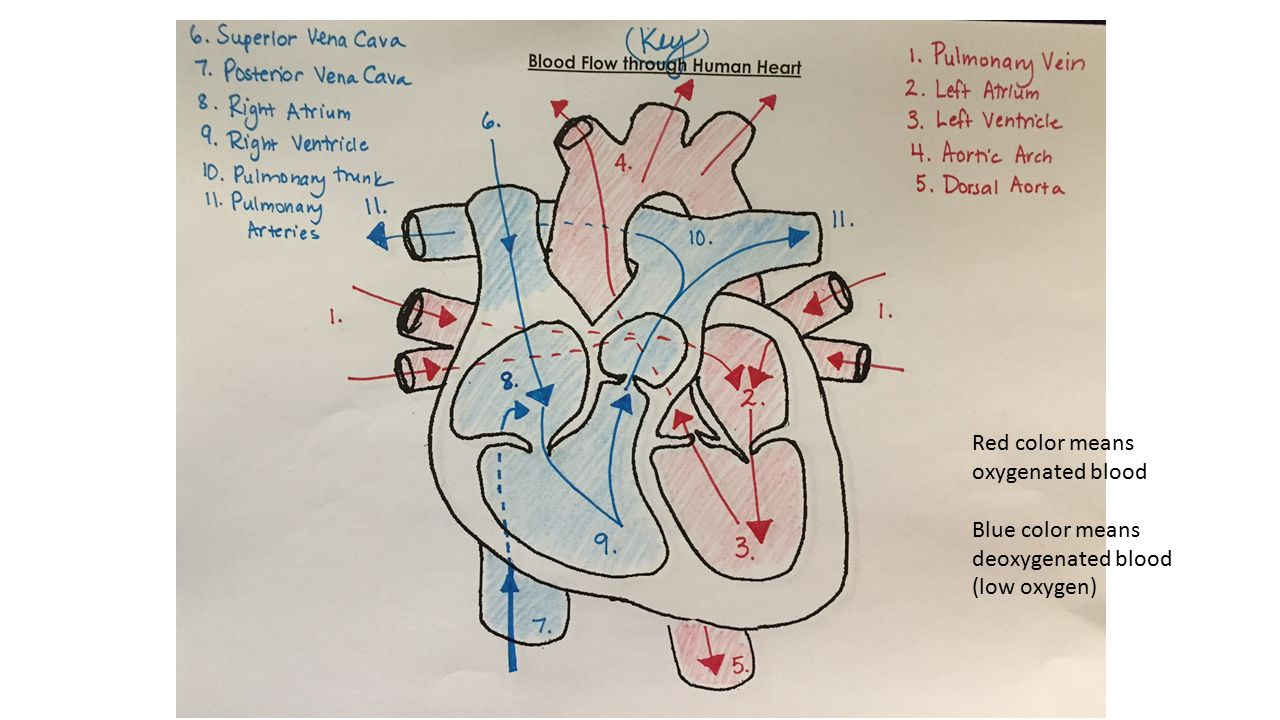 (Key)
Blood Flow through Human Heart
6. Superior Vena Cava
7. Posterior Vena Cava
8. Right Atrium
9. Right Ventricle
10. Pulmonary trunk
11. Pulmonary
Arteries
1. Pulmonary Vein
2. Left Atrium
3. Left Ventricle
4. Aortic Arch
5. Dorsal Aorta
6.
4.
11.
10.
11.
1.
1.
8.
2.
9.
3.
7.
5.
Red color means
oxygenated blood
Blue color means
deoxygenated blood
(low oxygen)